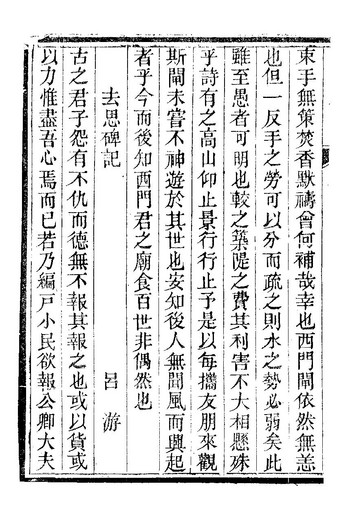 束手無策焚香默禱曾何補哉幸也西門閘依然無恙
也但一反手之勞可以分而疏之則水之勢必弱矣此
雖至愚者可明也較之築隄之費其利害不大相懸殊
乎詩有之高山仰止景行行止予是以每攜友朋來觀
斯閘未嘗不神遊於其世也安知後人無聞風而興起
者乎今而後知西門君之廟食百世非偶然也
去思碑記 呂游
古之君子怨有不仇而德無不報其報之也或以貨或
以力惟盡吾心焉而已若乃編戸小民欲報公卿大夫